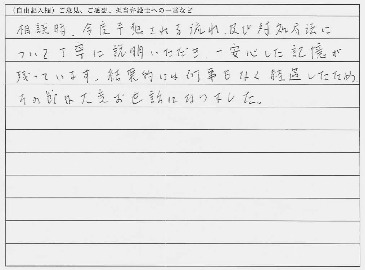 (自由記入欄)ご意見、ご感想、担当弁護士への一言など
相談時、今度予想される流れ、及び対処方法に
ついて丁寧に説明いただき、一安心した記憶が
残っています。結果的には何事もなく経過したため
その節は大変お世話になりました。